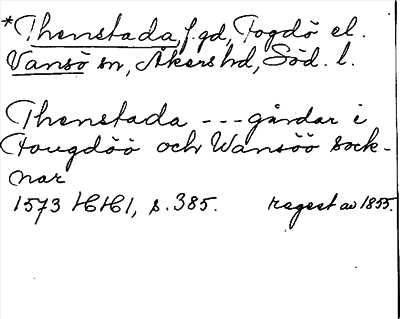 *Thenstada, f. gd, Fogdö el.
Vansö sn, Åkers hd, Söd. l.
Thenstada --- gårdar i
Fougdöö och Wansöö sock-
nar
1573 HH1, s. 385. regest av 1855.